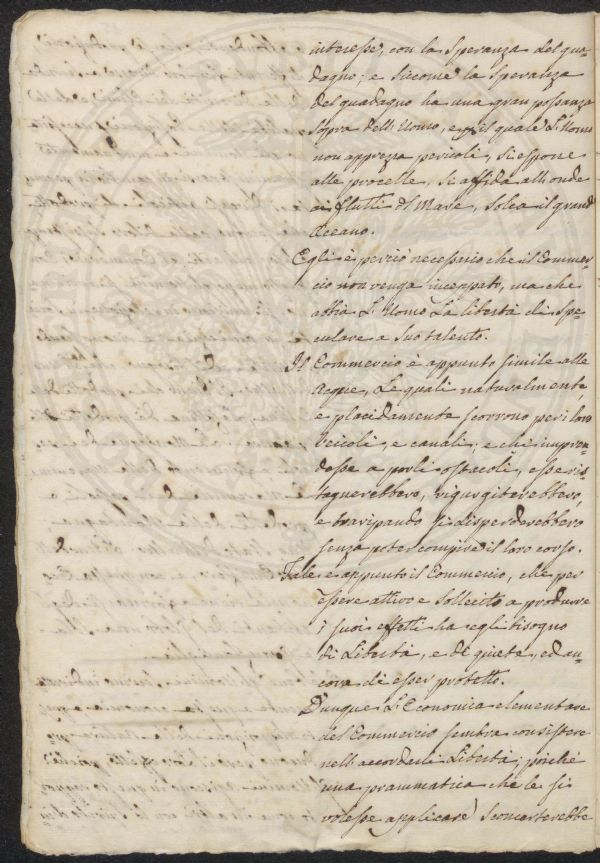 interesse, con la Speranza del gua-
dagno; e siccome la speranza
del guadagno ha una gran possanza
sopra dell'Uomo, e il quale L'Uomo
non apprezza pericoli, si espone
alle procelle, si affida all'onde
ai flutti del Mare, solca il grand
Oceano.
Egli è perciò necessario che il Commer-
cio non venga inceppato, ma che
abbia L'Uomo La libertà di spe-
culare a Suo talento.
Il Commercio è appunto simile alle
acque, Le quali naturalmente,
e placidamente scorrono per i loro
veicoli, e canali; e chi impren-
desse a porli ostacoli, esse ris-
tagnerebbero, rigurgiterebbero,
e straripando si disperderebbero
senza poter compire il loro corso.
Tale e appunto il Commercio, che per
essere attivo e sollecito a produrre
i suoi effetti ha egli bisogno
di Libertà, e di quiete, ed an-
cora di esser protetto.
Dunque L'Economica elementare
del Commercio sembra consistere
nell'accordarli Libertà; poiché
una prammatica che le si
volesse applicare Sconcerterebbe